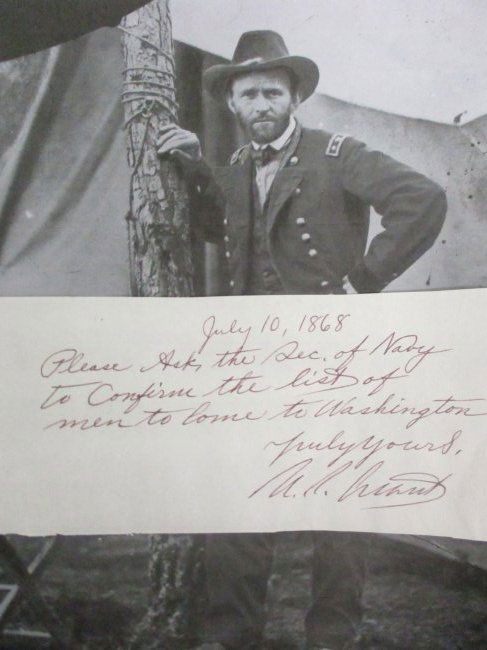 July 10, 1868
Please Ask the Sec. of Navy
to Confirm the list of
men to Come to Washington
Truly Yours,
U. S. Grant